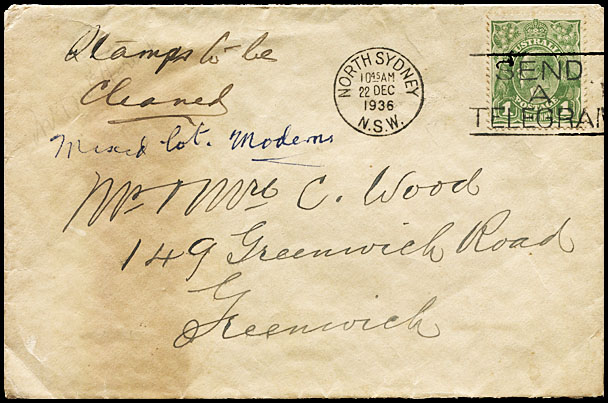 Stamps to be
Cleaned
Mixed lot. Moderns
NORTH SYDNEY
10 45 AM
22 DEC
1936
N.S.W.
SEND
A
TELEGRAM
AUSTRALIA
1 1
Mr & Mrs C. Wood
149 Greenwich Road
Greenwich